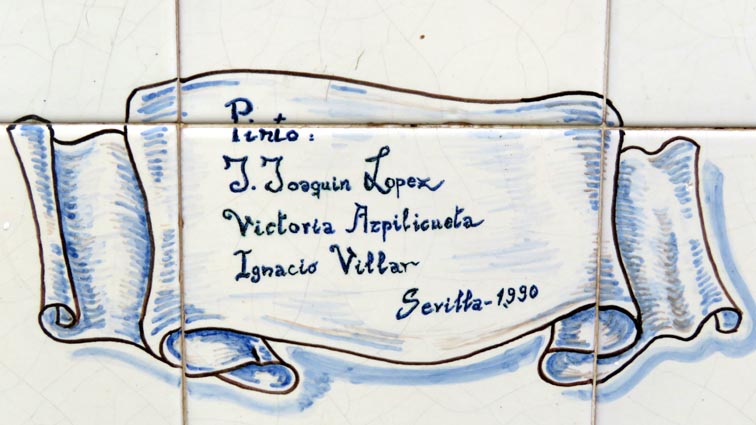 Pinto:
J. Joaquin Lopez
Victoria Azpilicueta
Ignacio Villar
Sevilla-1990